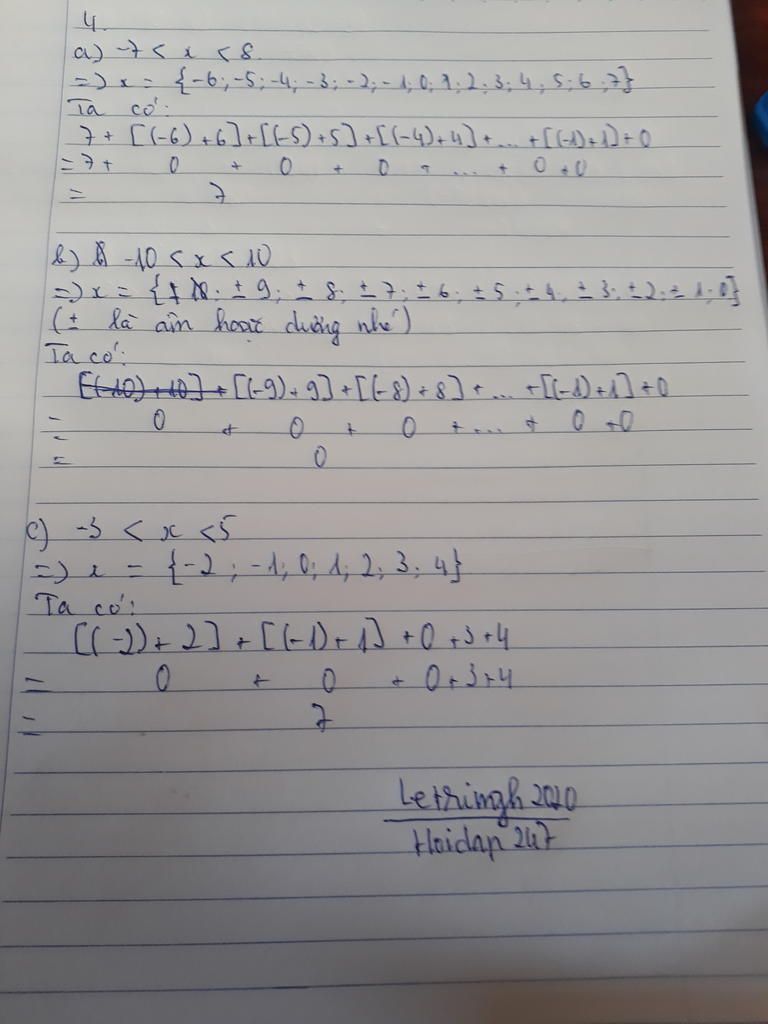 4.
a) -7 < x < 8
=> x = {-6; -5; -4; -3; -2; -1; 0; 1; 2; 3; 4; 5; 6; 7}
Ta có:
7 + [(-6) + 6] + [(-5) + 5] + [(-4) + 4] + ... + [(-1) + 1] + 0
= 7 + 0 + 0 + 0 + ... + 0 + 0
= 7
b) -10 < x < 10
=> x = { ± 9; ± 8; ± 7; ± 6; ± 5; ± 4; ± 3; ± 2; ± 1; 0}
(± là âm hoặc dương nhé)
Ta có:
[(-10) + 10] + [(-9) + 9] + [(-8) + 8] + ... + [(-1) + 1] + 0
= 0 + 0 + 0 + ... + 0 + 0
= 0
c) -3 < x < 5
=> x = {-2; -1; 0; 1; 2; 3; 4}
Ta có:
[(-2) + 2] + [(-1) + 1] + 0 + 3 + 4
= 0 + 0 + 0 + 3 + 4
= 7
Hoidap 247